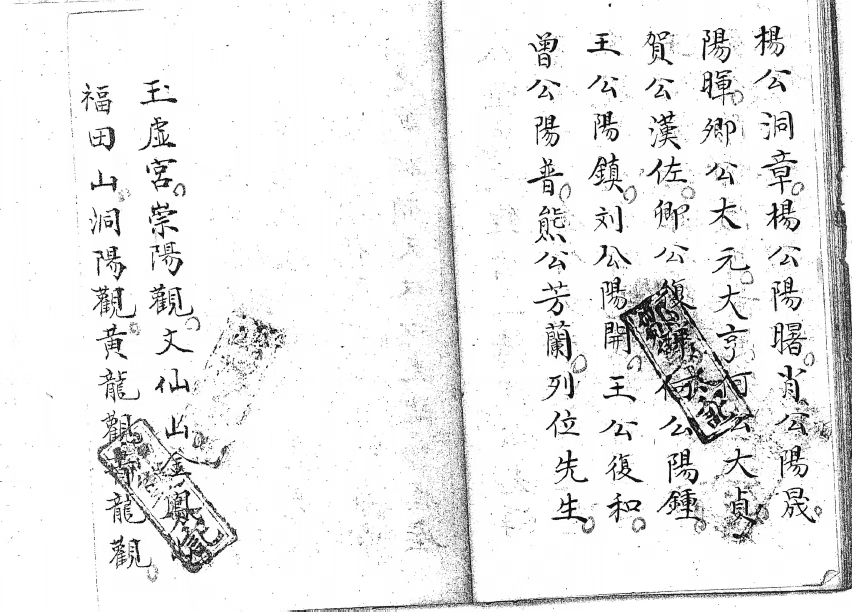 楊公洞章。楊公陽曙。肖公陽晟。
陽暉。卿公大元。大亨何公大貞。
賀公漢佐。卿公復何公陽鍾。
王公陽鎮。刘公陽開。王公復和。
曾公陽普。熊公芳蘭。列位先生。
玉虛宮。崇陽觀。文仙山金鳳
福田山。洞陽觀。黃龍觀龍觀。